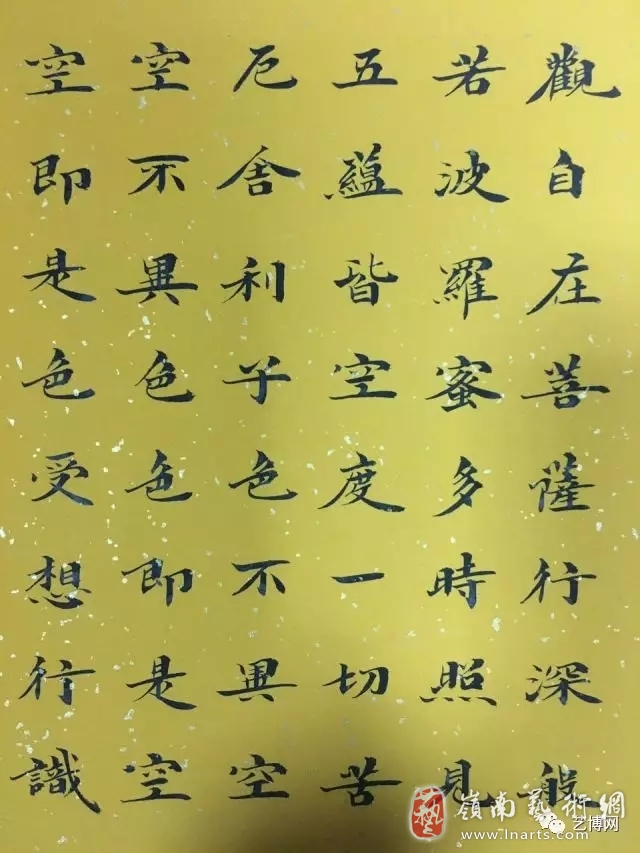 觀自在菩薩行深般
若波羅蜜多時照見
五蘊皆空度一切苦
厄舍利子色不異空
空不異色色即是空
空即是色受想行識
嶺南藝術網
www.lnarts.com
艺博网